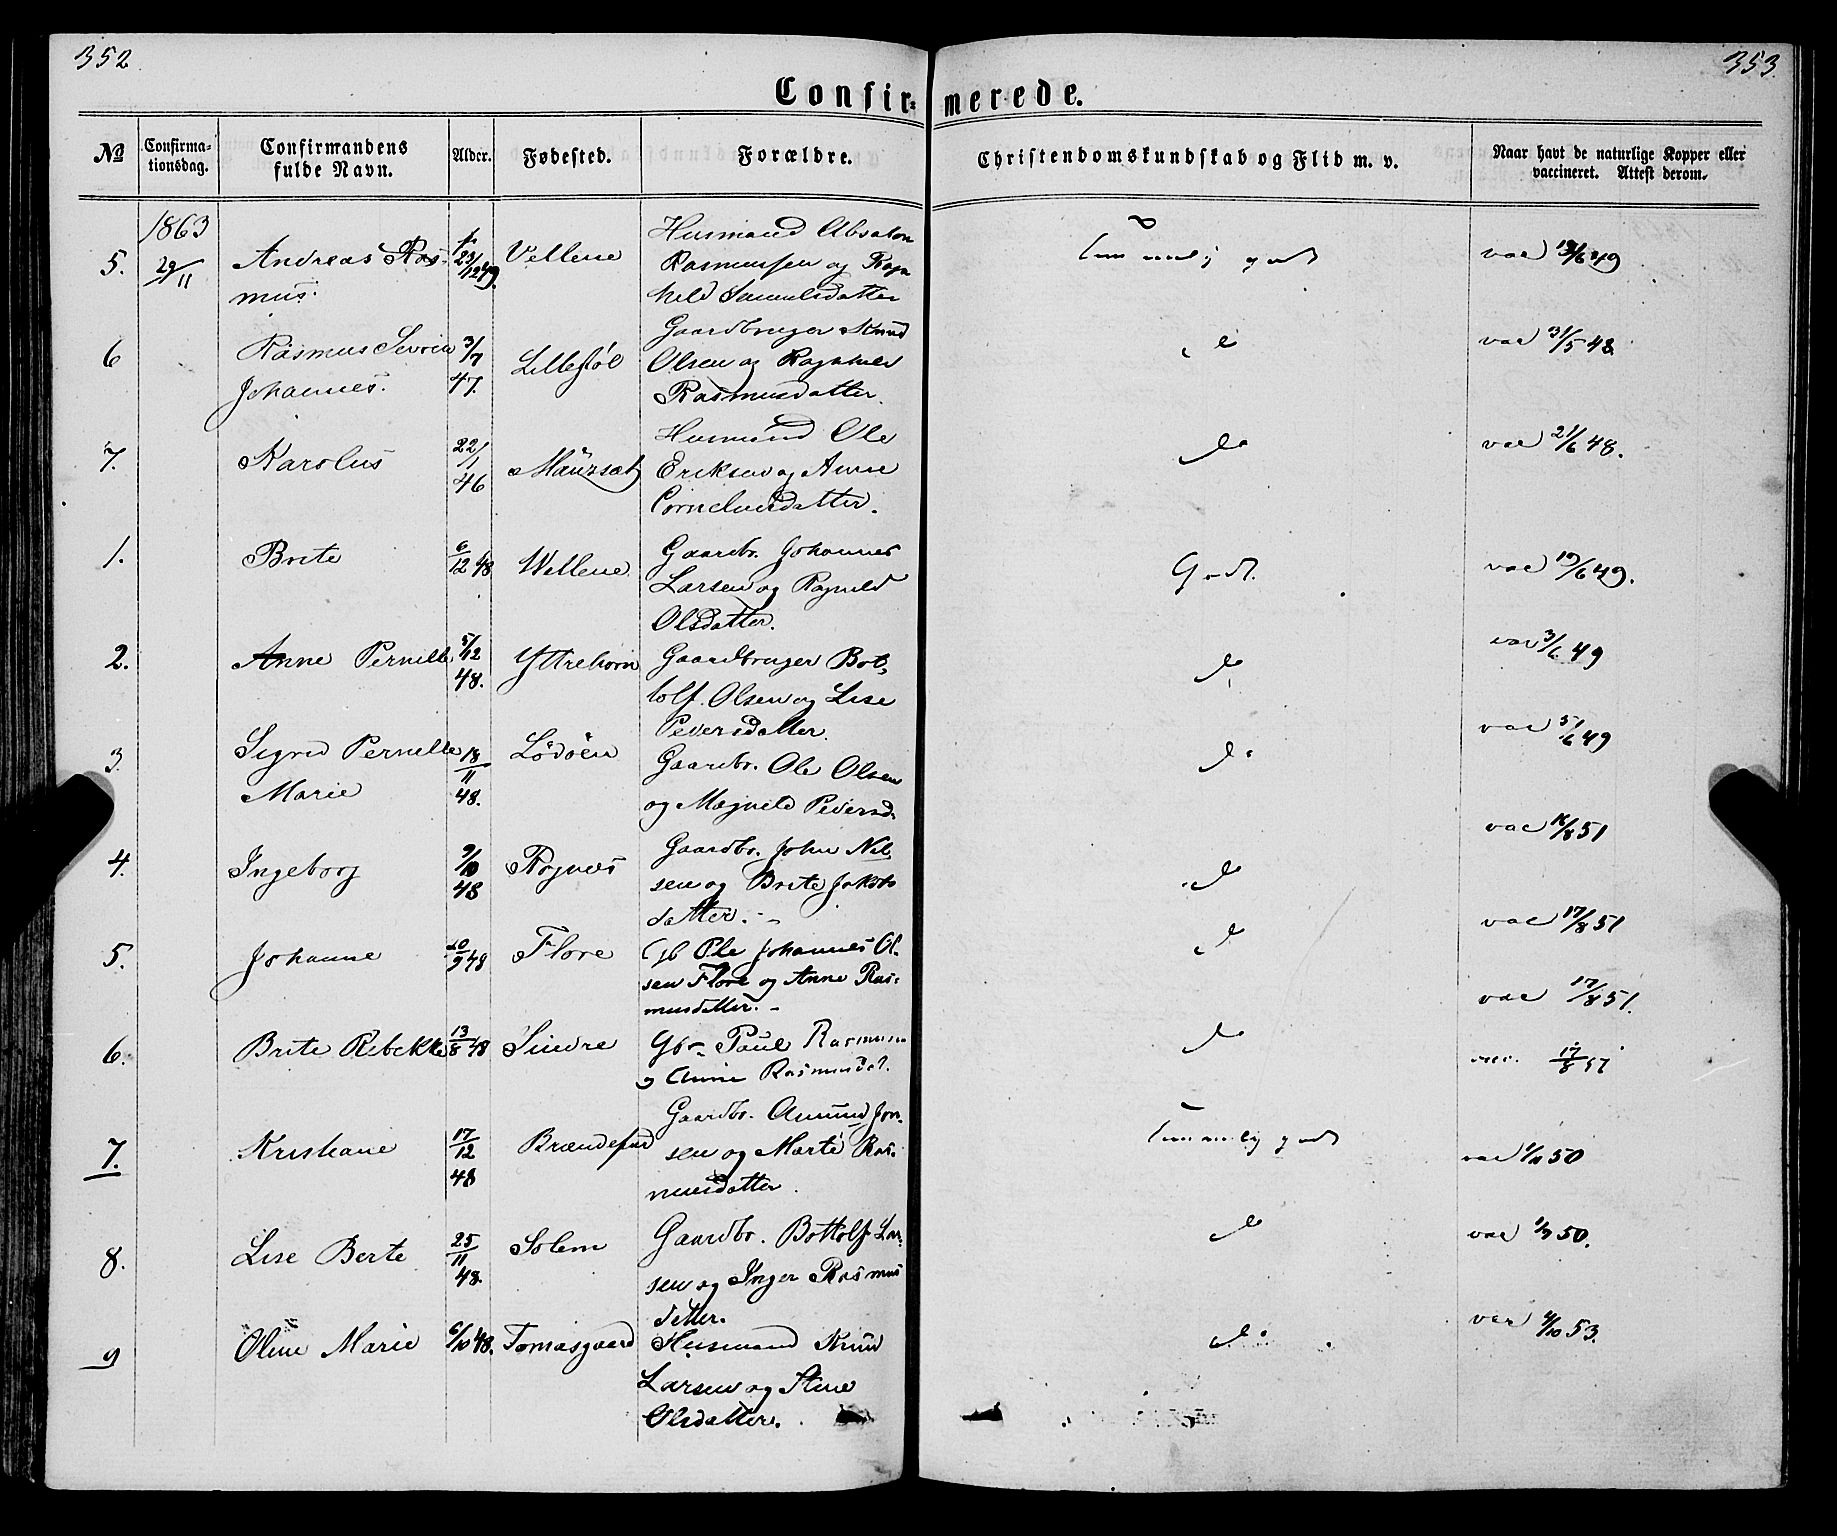 352
353
Confirmerede.
№ Confirmationsdag. Confirmandens fulde Navn. Alder. Fødested. Forældre. Christendomskundskab og Flid m. v. Naar havt de naturlige Kopper eller vaccineret. Attest derom.
1863
5. 29/11 Andreas Rasmus. 23/12 49. Vellene Husmand Absalon
Rasmussen og
Samuelsdatter
Temmelig godt
vac 49
6 Rasmus Sevrin Johannes. 3/7 47. Lillestøl Gaardbruger Knud
Olsen og Ragnhild
Rasmusdatter.
do
vac 31/5 48.
7. Karolus 22/1 46 Husmand Ole
Eriksen og Anne
Corneliusdatter.
do
vac 21/6 48.
1. Brite 6/12 48 Wellene Gaardbr. Johannes
Larsen og Ragnild
Olsdatter.
Godt.
vac 19/6 49.
2. Anne Pernille 5/12 48. Yttrehorn Gaardbruger Bot-
tolf Olsen og Lise
Pedersdatter.
do
vac 3/6 49
3. Sigrid Pernille Marie 18/11 48. Lødøen Gaardbr. Ole Olsen
og Magnild Pedersd.
do
vac 5/6 49
4. Ingeborg 9/10 48 Rognes Gaardbr. John Nil-
sen og Brite Jakobs
datter.
do
vac 51
5. Johanne 10/9 48 Florø Gb Ole Johannes Ol-
sen Florø og Anne Ras-
musdatter.
do
vac 17/8 51
vac 17/8 51.
6. Brite Rebekke 13/8 48 Sindre Gbr Paul Rasmussen
og Anne Rasmusdt.
do
vac. 17/8 51
7. Kristiane 17/12 48 Gaardbr. Amund Jon-
sen og Marte Ras-
musdatter.
Temmelig godt
vac 50
8. Lise Berte 25/11 48. Solem Gaardbr. Bottolf Lar-
sen og Inger Rasmus
datter.
do
vac 50.
9 Oline Marie 6/10 48. Tomasgaard Husmand Knud
Larsen og Stine
Olsdatter.
do
vac 4/10 53.